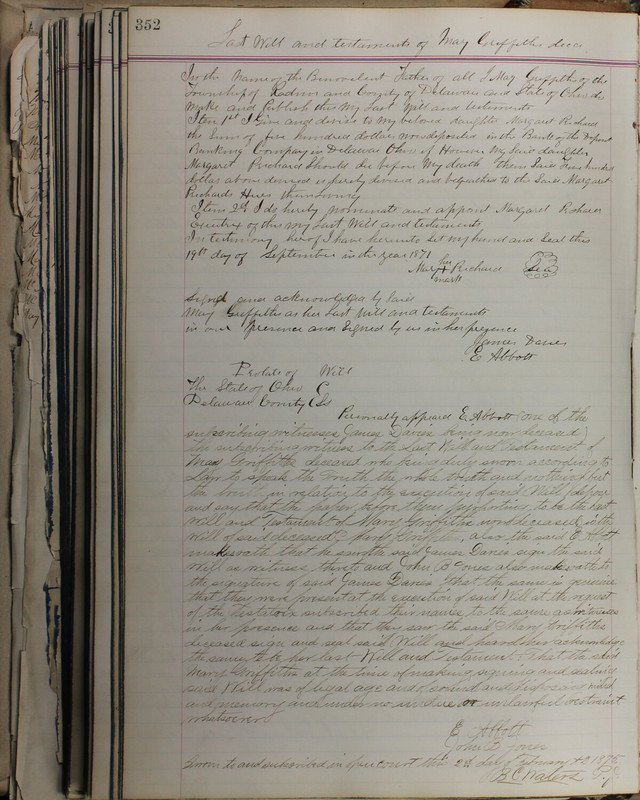 352
Last Will and testaments of Mary Griffiths decs
In the Name of the Benevolent Father of all I Mary Griffiths of the
Township of Radnor and County of Delaware and State of Ohio do
Make and Publish this My Last Will and testaments
Item 1st I Give and devise to my beloved daughter Margaret Richard
the Sum of five hundred dollars now deposited in the Bank of the Deposit
Banking Company in Delaware Ohio if However My Said daughter
Margaret Richard Should die before My death then Said Five hundred
dollas above devised is hereby devised and bequathed to the Said Margaret
Richards Heirs then living
Item 2d I do hereby nominate and appoint Margaret Richard
Executrix of this my Last Will and testaments
In testimony hereof I have hereunto Set my hand and Seal this
19th day of September in the year 1871
Mary her X mark Richard Seal
Signed and acknowledged by Said
Mary Griffiths as her Last Will and testaments
in our Presence and Signed by us in her presence
James Davies
E Abbott
Probate of Will
The State of Ohio
Delaware County SS
Personally appeared E. Abbott one of the
subscribing witnesses James Davies being now deceased
the subscribing witness to the Last Will and Testament of
Mary Griffiths deceased who being duly sworn according to
Law to speak the truth the whole truth and nothing but
the truth in relation to the execution of said Will depose
and say that the paper before them purporting to be the last
Will and Testament of Mary Griffiths now deceased is the
Will of said deceased Mary Griffiths, also the said E Abbott
makes oath that he saw the said James Davies sign the said
Will as witness thereto and John D Jones also makes oath to
the signature of said James Davies that the same is genuine
that they were present at the execution of said Will at the request
of the Testatrix subscribed their names to the same as witnesses
in her presence and that they saw the said Mary Griffiths
deceased sign and seal said Will and heard her acknowledge
the same to be her last Will and Testament. That the said
Mary Griffiths at the time of making signing and sealing
said Will was of legal age and of sound and disposing mind
and memory and under no undue or unlawful restraint
whatsoever
E Abbott
John D Jones
Sworn to and subscribed in open court this 2d day of February AD 1875
B.C. Waters P.J.